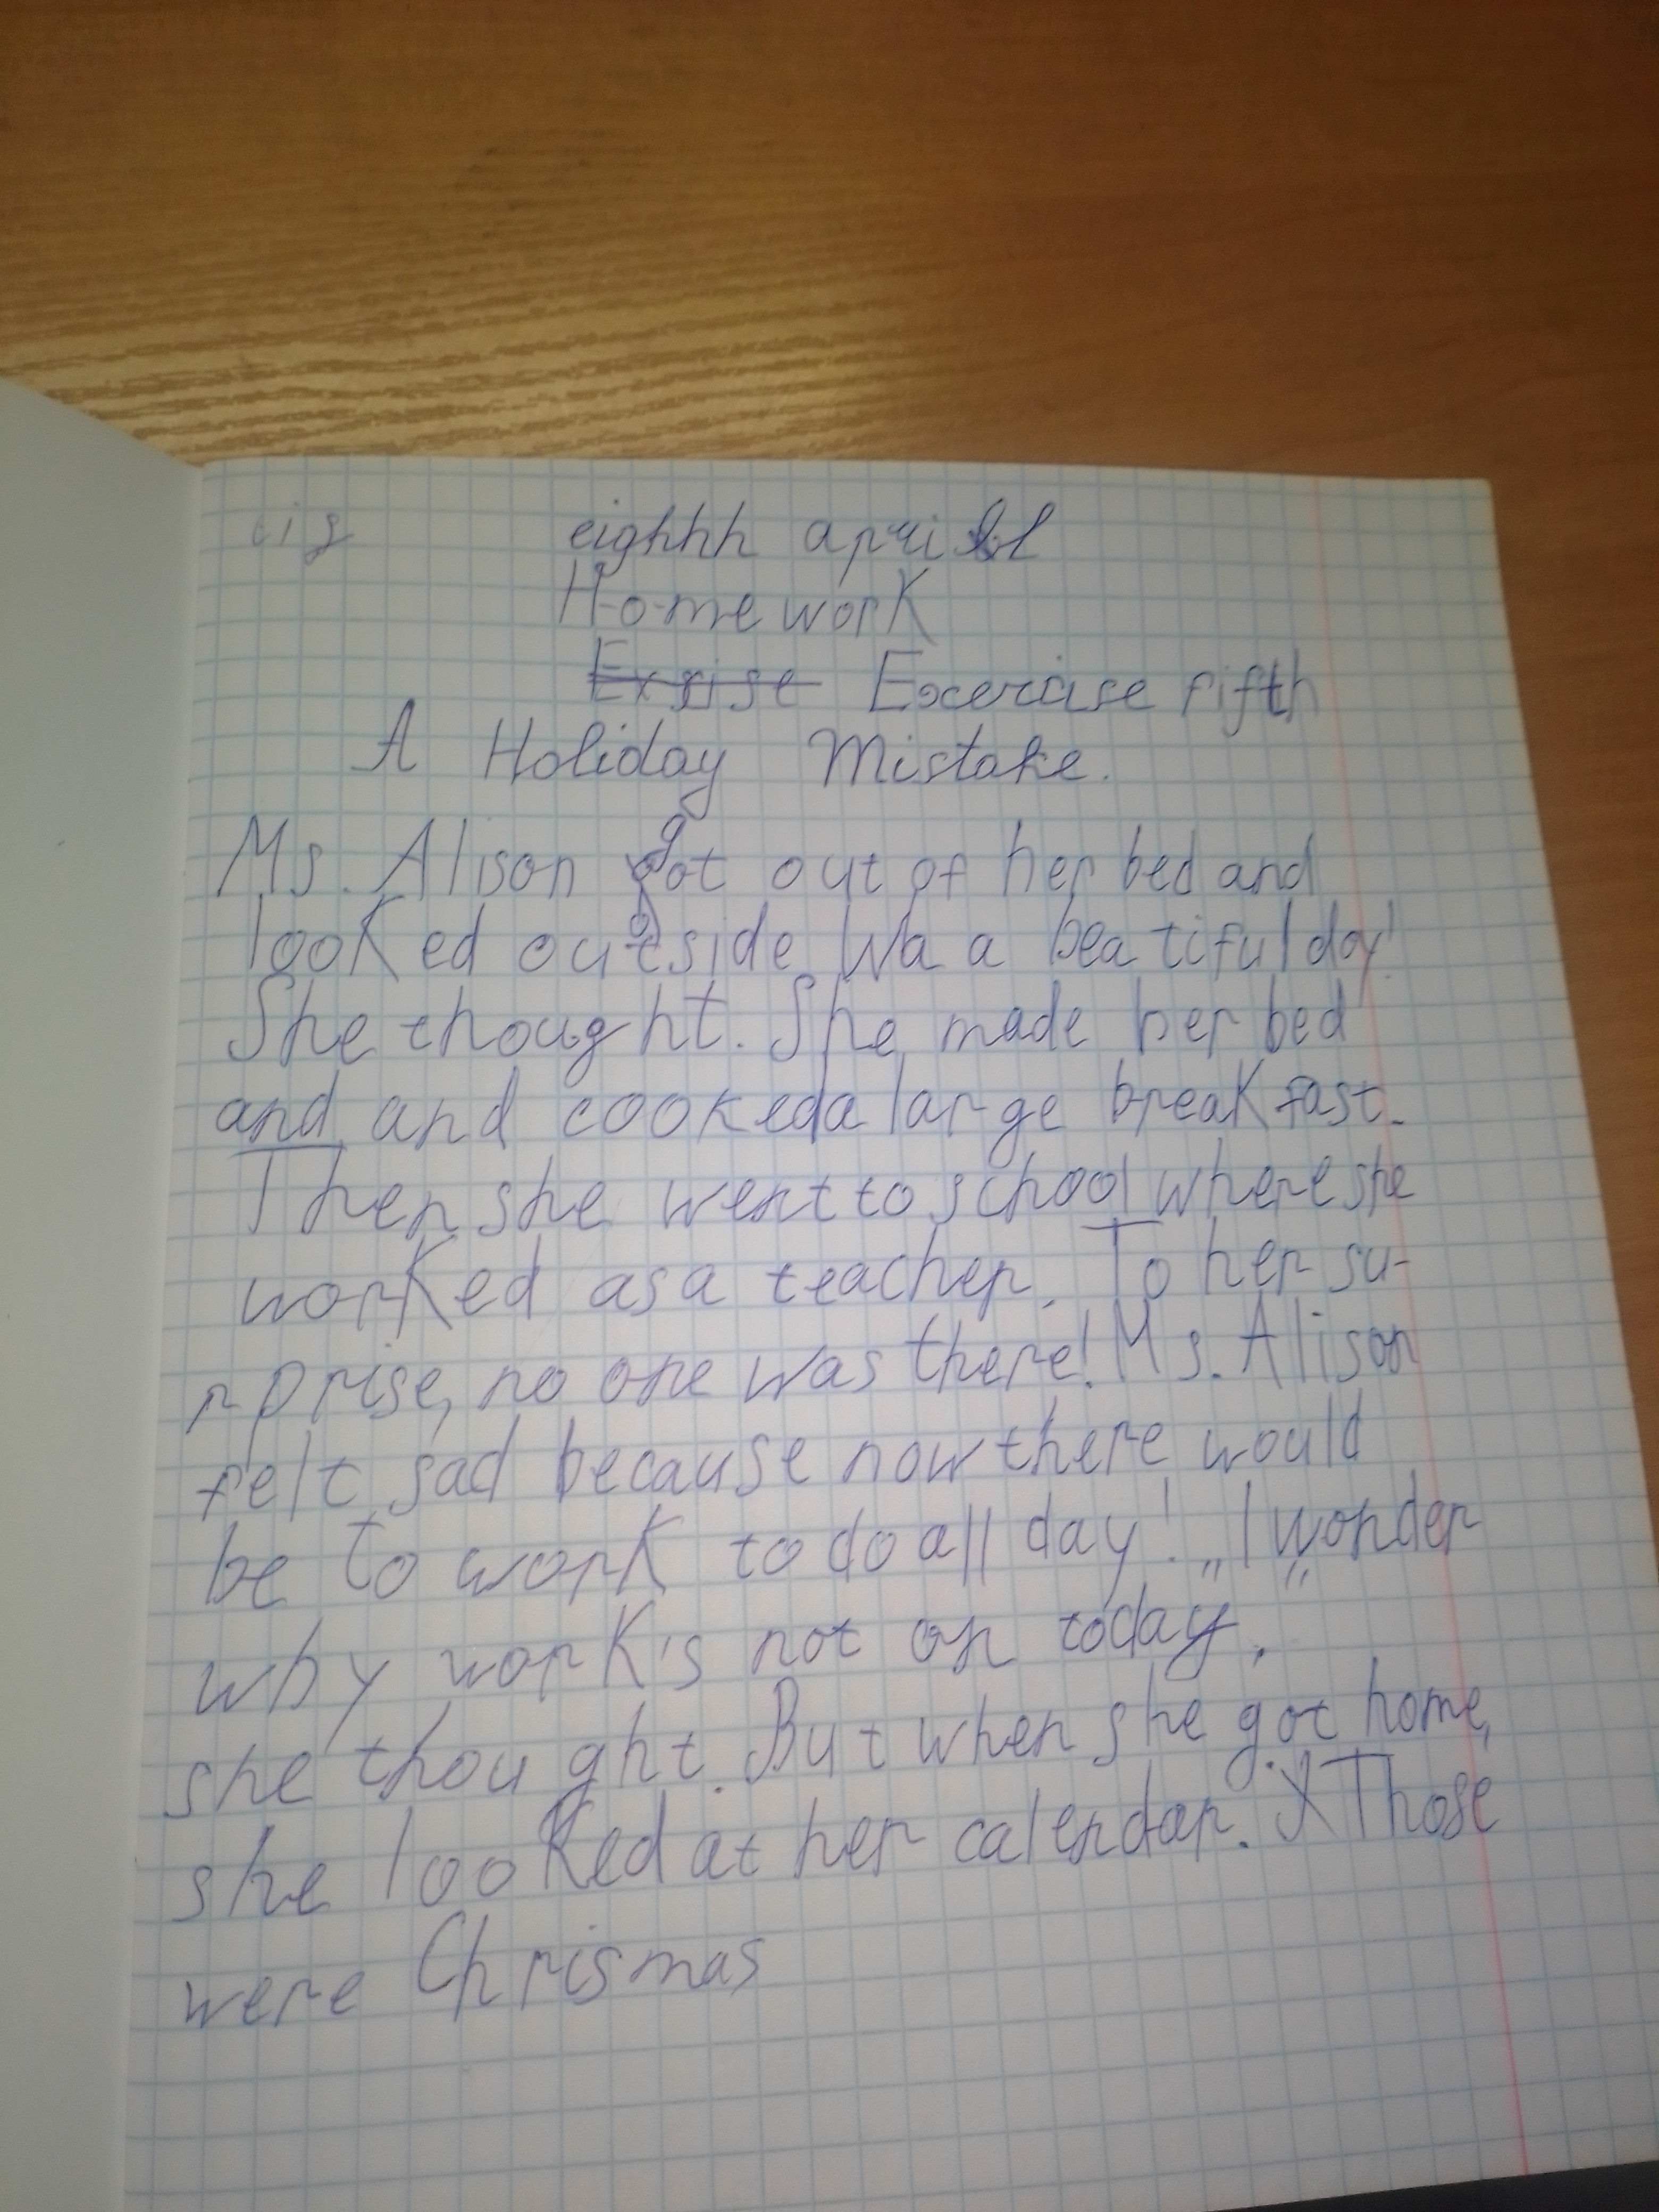 eighhh april
Homework
Exrise Excercise fifth
A Holiday Mistake.
Ms. Alison got out of her bed and
looked outside. Wa a beatiful day!
She thought. She made her bed
and and cooked a large breakfast.
Then she went to school where she
worked as a teacher. To her su-
rprise, no one was there! Ms. Alison
felt sad because now there would
be to work to do all day! „I wonder
why work's not on today,"
she thought. But when she got home,
she looked at her calendar. Those
were Chrismas